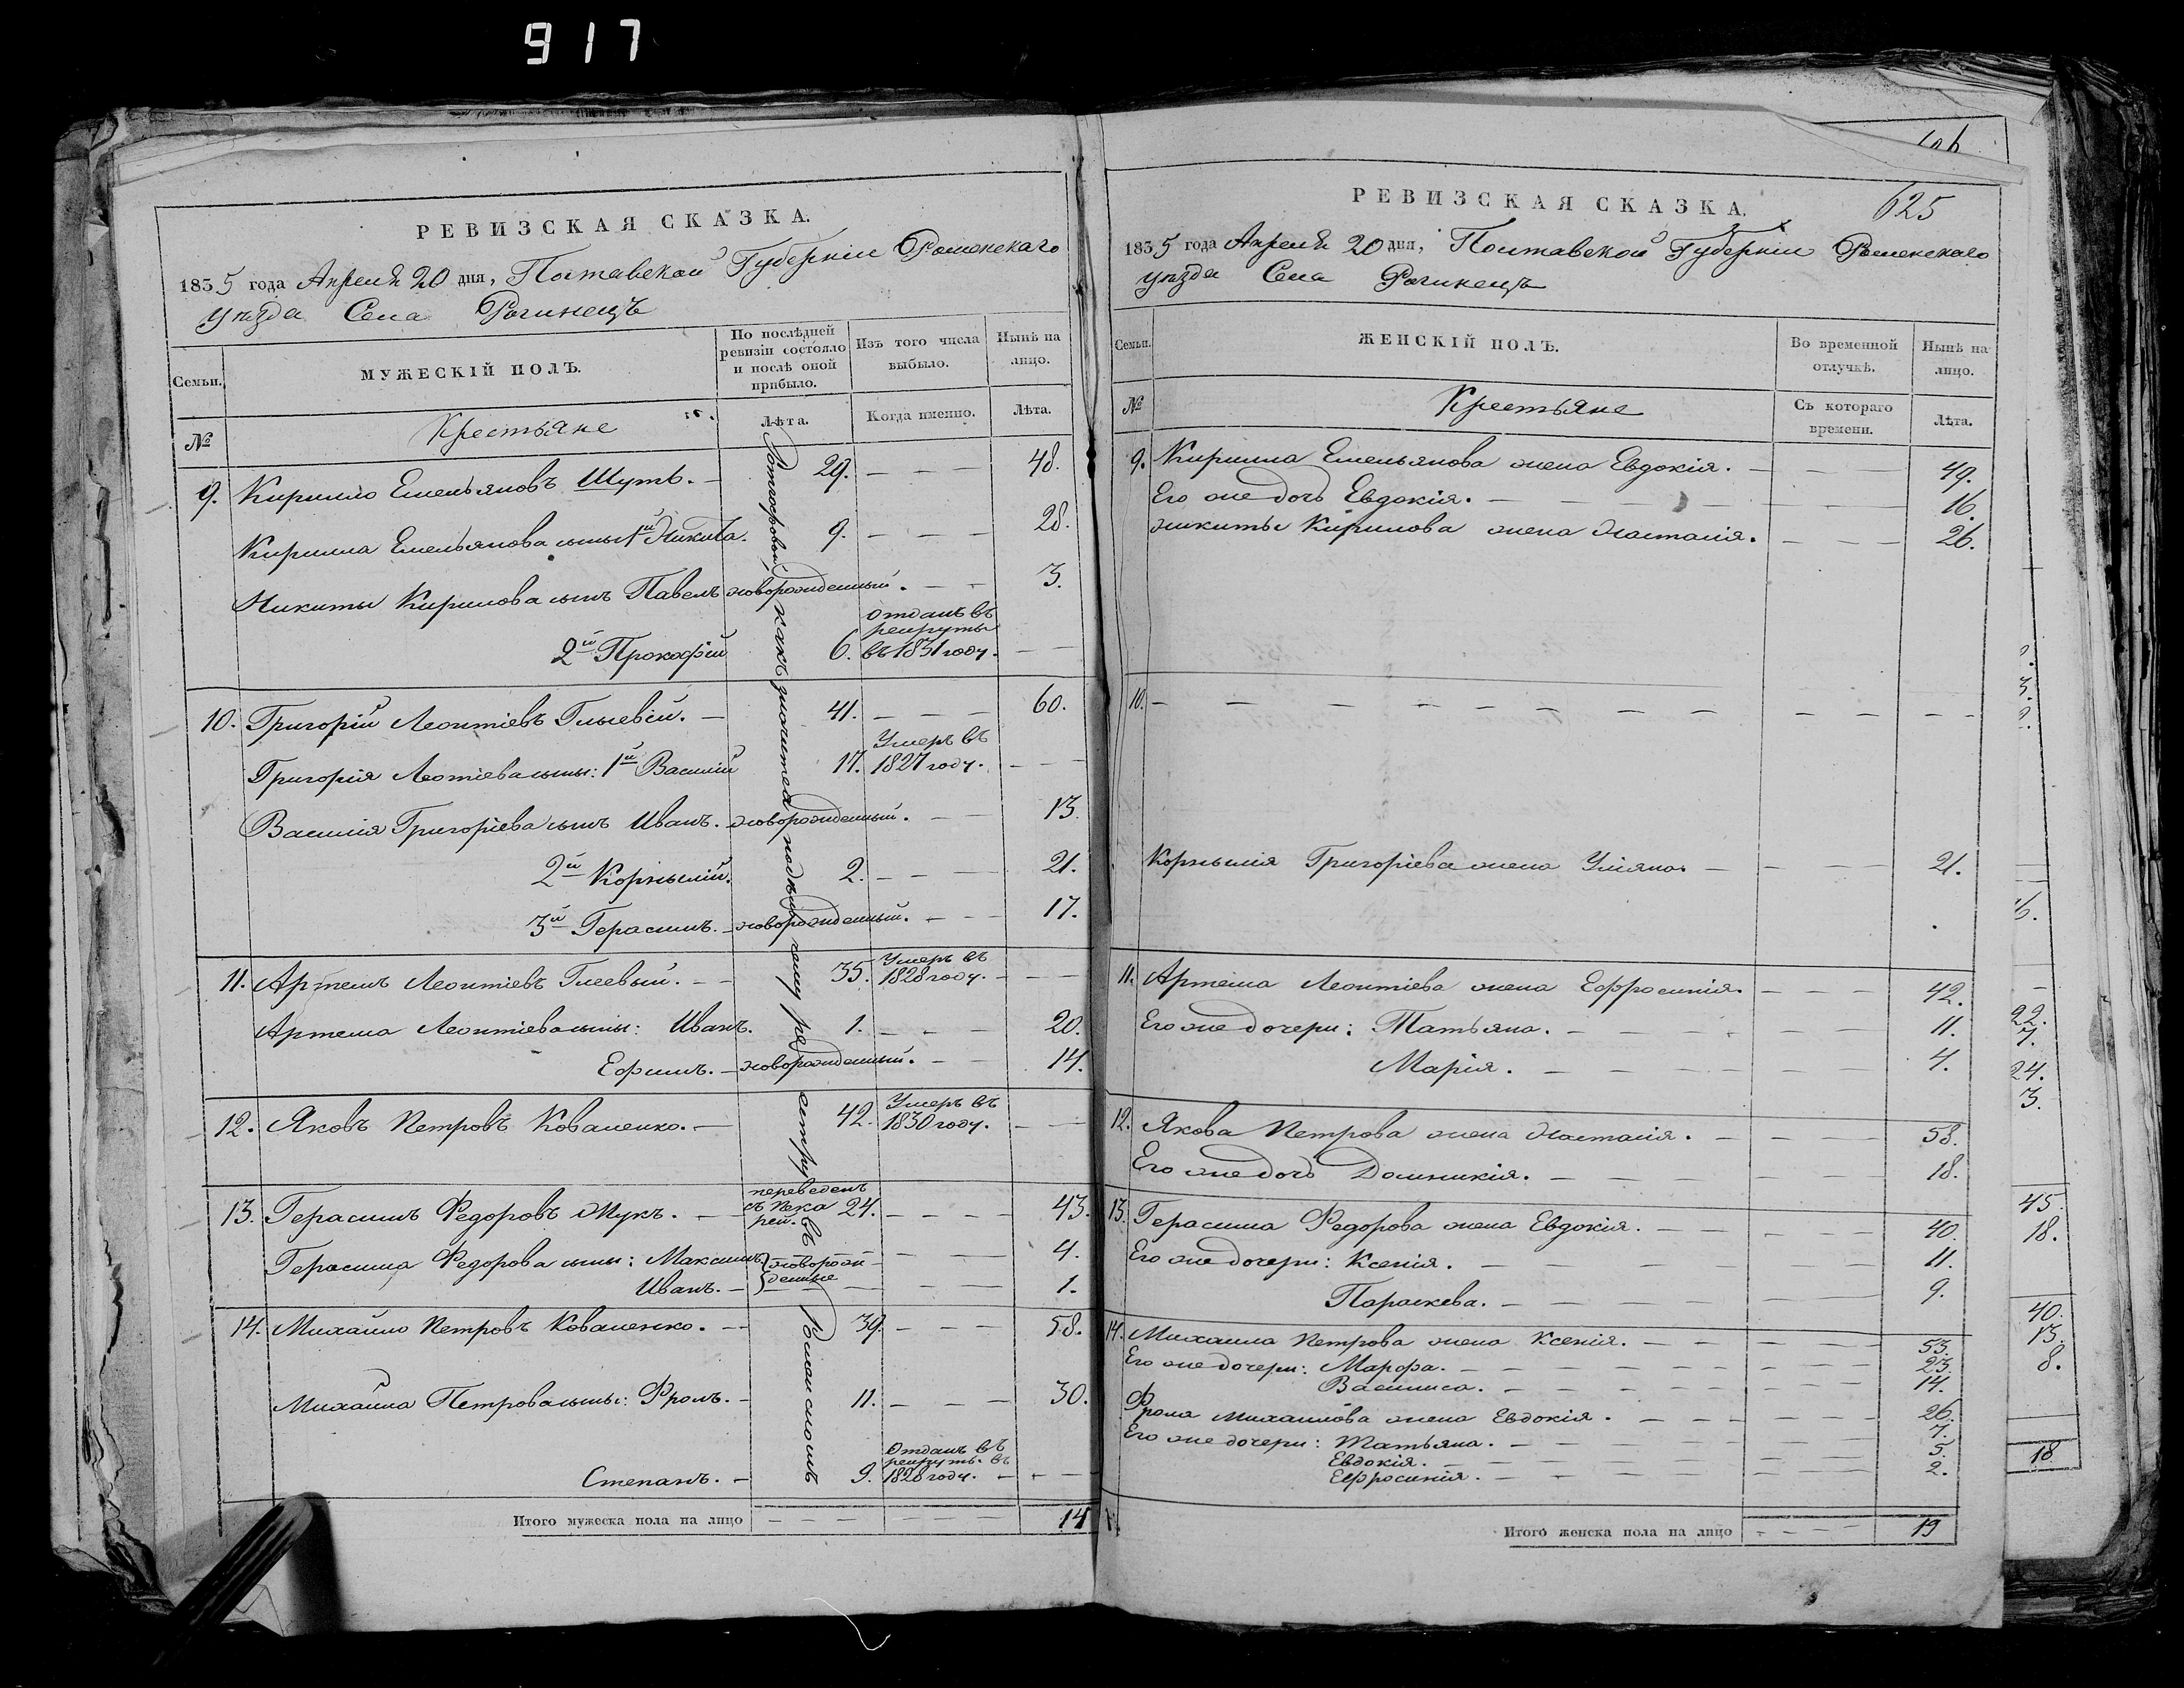 917
РЕВИЗСКАЯ СКАЗКА.
1835 года Апреля 20 дня, Полтавской Губернии Роменскаго
уѣзда Села Рогинецъ
Семьи.
МУЖЕСКІЙ ПОЛЪ.
По послѣдней ревизіи состояло и послѣ оной прибыло.
Изъ того числа выбыло.
Нынѣ на лицо.
№
Крестьяне
Лѣта.
Когда именно.
Лѣта.
9. Кирилло Емельяновъ Шуть. 29. 48.
Кирилла Емельянова сыны 1й Никита. 9. 28.
Никиты Кирилова сынъ Павелъ новорожденный. 3.
2й Прокофій 6. отданъ въ рекруты въ 1831 году.
10. Григорій Леонтіевъ 41. 60.
Григорія Леотіева сыны: 1й Василій 17. Умеръ въ 1827 году.
Василія Григоріева сынъ Иванъ. новорожденный. 13.
2й Корнылій. 2. 21.
3й Герасимъ. новорожденный. 17.
11. Артемъ Леонтіевъ 35. Умеръ въ 1828 году.
Артема Леонтіева сыны: Иванъ. 1. 20.
Ефимъ. новорожденный. 14.
12. Яковъ Петровъ Коваленко. 42. Умеръ въ 1830 году.
13. Герасимъ Федоровъ Жукъ. переведенъ съ 24. 43.
Герасима Федорова сыны: Максимъ новорожденные 4.
Иванъ. 1.
14. Михайло Петровъ Коваленко. 39. 58.
Михайла Петрова сыны: Фролъ. 11. 30.
Степанъ. 9. Отданъ въ рекруты. въ 1828 году.
Итого мужеска пола на лицо 14
626
РЕВИЗСКАЯ СКАЗКА.
625
1835 года Апреля 20 дня, Полтавской Губерніи Роменскаго
уѣзда Села Рогинецъ
Семьи.
ЖЕНСКІЙ ПОЛЪ.
Во временной отлучкѣ.
Нынѣ на лицо.
№
Крестьяне
Съ котораго времени.
Лѣта.
9. Кирилла Емельянова жена Евдокія. 49.
Его же дочь Евдокія. 16.
Никиты Кирилова жена Настасія. 26.
10.
Корнылія Григоріева жена Уліяна. 21.
11. Артема Леонтіева жена Ефросинія. 42.
Его же дочери: Татьяна. 11.
Марія. 4.
12. Якова Петрова жена Настасія. 58.
Его же дочь Домникія. 18.
13. Герасима Федорова жена Евдокія. 40.
Его же дочери: Ксенія. 11.
Параскева. 9.
14. Михаила Петрова жена Ксенія. 53.
Его же дочери: Марфа. 23.
Василиса. 14.
Фрола Михаилова жена Евдокія. 26.
Его же дочери: Татьяна. 7.
Евдокія. 5.
Ефросинія. 2.
Итого женска пола на лицо 19